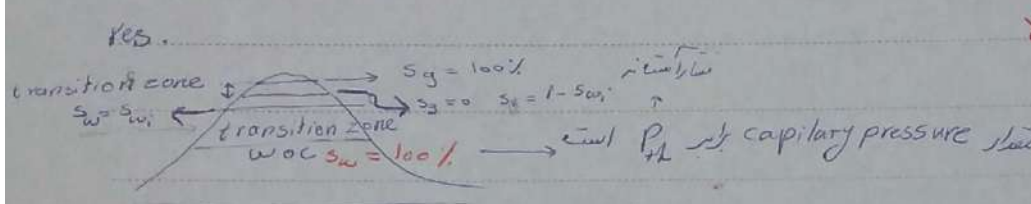 res.
transition zone
Sg = 100%
فشار آستانه
Sw = Swi
Sg = 0 So = 1 - Swi
transition zone
WOC Sw = 100% → مقدار capilary pressure برابر Pth است